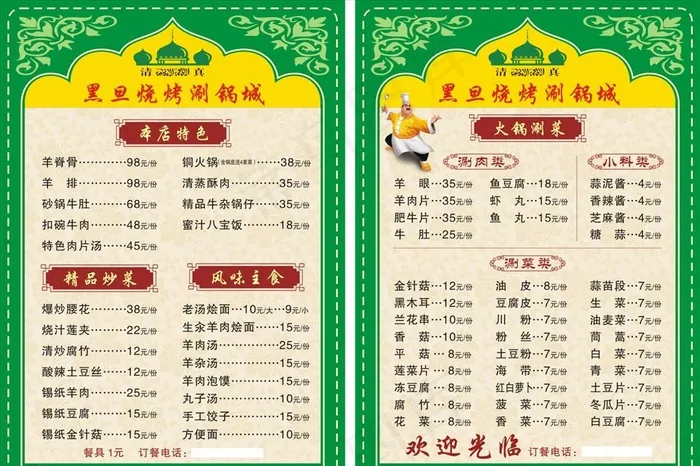 清 真
黑旦烧烤涮锅城
本店特色
羊脊骨………98元/份
羊 排………98元/份
砂锅牛肚……68元/份
扣碗牛肉……48元/份
特色肉片汤…45元/份
铜火锅(含锅底送4素菜)……38元/份
清蒸酥肉………35元/份
精品牛杂锅仔…35元/份
蜜汁八宝饭……18元/份
精品炒菜
爆炒腰花………38元/份
烧汁莲夹………22元/份
清炒腐竹………12元/份
酸辣土豆丝……12元/份
锡纸羊肉………25元/份
锡纸豆腐………15元/份
锡纸金针菇……15元/份
风味主食
老汤烩面…10元/大…9元/小
生汆羊肉烩面…15元/份
羊肉汤…………25元/份
羊杂汤…………15元/份
羊肉泡馍………15元/份
丸子汤…………10元/份
手工饺子………15元/份
方便面…………10元/份
餐具1元 订餐电话:
清 真
黑旦烧烤涮锅城
火锅涮菜
涮肉类
羊 眼…35元/份
羊肉片…35元/份
肥牛片…35元/份
牛 肚…25元/份
鱼豆腐…18元/份
虾 丸…15元/份
鱼 丸…15元/份
小料类
蒜泥酱…4元/份
香辣酱…4元/份
芝麻酱…4元/份
糖 蒜…4元/份
涮菜类
金针菇…12元/份
黑木耳…12元/份
兰花串…10元/份
香 菇…10元/份
平 菇…8元/份
莲菜片…8元/份
冻豆腐…8元/份
腐 竹…8元/份
花 菜…8元/份
油 皮…8元/份
豆腐皮…7元/份
川 粉…7元/份
粉 丝…7元/份
土豆粉…7元/份
海 带…7元/份
红白萝卜…7元/份
菠 菜…7元/份
香 菜…7元/份
蒜苗段…7元/份
生 菜…7元/份
油麦菜…7元/份
茼 蒿…7元/份
白 菜…7元/份
青 菜…7元/份
土豆片…7元/份
冬瓜片…7元/份
白豆腐…7元/份
欢迎光临 订餐电话: